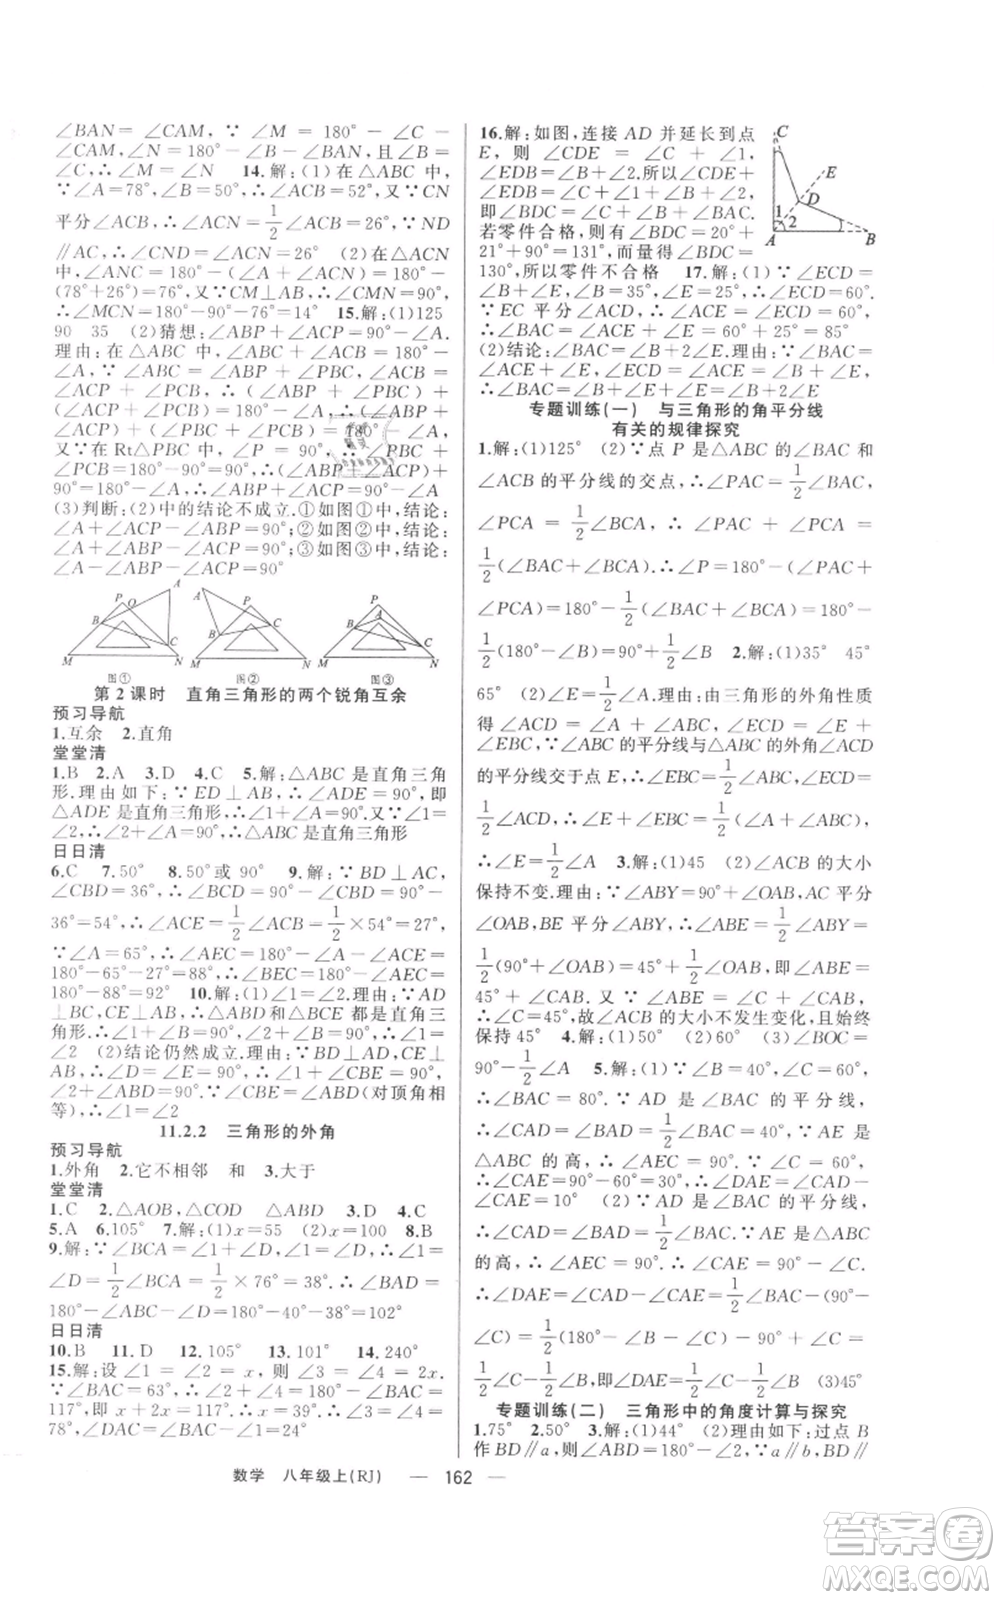 ∠BAN＝∠CAM，∵∠M＝180°－∠CAM－∠C，∠N＝180°－∠B－∠BAN，∠B＝
∠C，∴∠M＝∠N　14.解：(1)在△ABC中，
∵∠A＝78°，∠B＝50°，∴∠ACB＝52°，又∵CN
平分∠ACB，∴∠ACN＝1/2∠ACB＝26°，∵ND
∥AC，∴∠CND＝∠ACN＝26°　(2)在△ACN
中，∠ANC＝180°－(∠A＋∠ACN)＝180°－
(78°＋26°)＝76°，又∵CM⊥AB，∴∠CMN＝90°，
∴∠MCN＝180°－90°－76°＝14°　15.解：(1)125
90　35　(2)猜想：∠ABP＋∠ACP＝90°－∠A.
理由：在△ABC中，∠ABC＋∠ACB＝180°－
∠A，∵∠ABC＝∠ABP＋∠PBC，∠ACB＝
∠ACP＋∠PCB，∴(∠ABP＋∠PBC)＋
(∠ACP＋∠PCB)＝180°－∠A，∴(∠ABP＋
∠ACP)＋(∠PBC＋∠PCB)＝180°－∠A，
又∵在Rt△PBC中，∠P＝90°，∴∠PBC＋
∠PCB＝180°－90°＝90°，∴(∠ABP＋∠ACP)＋
90°＝180°－∠A，∴∠ABP＋∠ACP＝90°－∠A
(3)判断：(2)中的结论不成立.①如图①中，结论：
∠A＋∠ACP－∠ABP＝90°；②如图②中，结论：
∠A＋∠ABP－∠ACP＝90°；③如图③中，结论：
∠A－∠ABP－∠ACP＝90°
P O A B C M N
图①
A P B C M N
图②
P A B C M N
图③
第2课时　直角三角形的两个锐角互余
预习导航
1.互余　2.直角
堂堂清
1.B　2.A　3.D　4.C　5.解：△ABC是直角三角
形.理由如下：∵ED⊥AB，∴∠ADE＝90°，即
△ADE是直角三角形，∴∠1＋∠A＝90°.又∵∠1＝
∠2，∴∠2＋∠A＝90°，∴△ABC是直角三角形
日日清
6.C　7.50°　8.50°或90°　9.解：∵BD⊥AC，
∠CBD＝36°，∴∠ACB＝90°－∠CBD＝90°－
36°＝54°，∴∠ACE＝1/2∠ACB＝1/2×54°＝27°，
∵∠A＝65°，∴∠AEC＝180°－∠A－∠ACE＝
180°－65°－27°＝88°，∴∠BEC＝180°－∠AEC＝
180°－88°＝92°　10.解：(1)∠1＝∠2.理由：∵AD
⊥BC，CE⊥AB，∴△ABD和△BCE都是直角三
角形，∴∠1＋∠B＝90°，∠2＋∠B＝90°，∴∠1＝
∠2　(2)结论仍然成立.理由：∵BD⊥AD，CE⊥
AB，∴∠D＝∠E＝90°，∴∠1＋∠CBE＝90°，
∠2＋∠ABD＝90°，∵∠CBE＝∠ABD(对顶角相
等)，∴∠1＝∠2
11.2.2　三角形的外角
预习导航
1.外角　2.它不相邻　和　3.大于
堂堂清
1.C　2.△AOB，△COD　△ABD　3.A　4.C
5.A　6.105°　7.解：(1)x＝55　(2)x＝100　8.B
9.解：∵∠BCA＝∠1＋∠D，∠D＝∠1，∴
∠D＝1/2∠BCA＝1/2×76°＝38°.∴∠BAD＝
180°－∠ABC－∠D＝180°－40°－38°＝102°
日日清
10.B　11.D　12.105°　13.101°　14.240°
15.解：设∠1＝∠2＝x，则∠3＝∠4＝2x.
∵∠BAC＝63°，∴∠2＋∠4＝180°－63°＝
117°，即x＋2x＝117°，∴x＝39°，∴∠DAC＝
∠BAC－∠1＝24°
16.解：如图，连接AD并延长到点
E，则∠CDE＝∠C＋∠1，
∠EDB＝∠B＋∠2.所以∠CDE＋
∠EDB＝∠C＋∠1＋∠B＋∠2，
即∠BDC＝∠B＋∠C＋∠BAC.
若零件合格，则有∠BDC＝20°＋
21°＋90°＝131°，而量得∠BDC＝
130°，所以零件不合格　17.解：(1)∵∠ECD＝
∠B＋∠E，∠B＝35°，∠E＝25°，∴∠ECD＝60°.
∵EC平分∠ACD，∴∠ACE＝∠ECD＝60°，
∴∠BAC＝∠ACE＋∠E＝60°＋25°＝85°
(2)结论：∠BAC＝∠B＋2∠E.理由：∵∠BAC＝
∠ACE＋∠E，∠ECD＝∠ACE＝∠B＋∠E，
∴∠BAC＝∠B＋∠E＋∠E＝∠B＋2∠E
C E D 1 2 A B
专题训练(一)　与三角形的角平分线
有关的规律探究
1.解：(1)125°　(2)∵点P是△ABC的∠BAC和
∠ACB的平分线的交点，∴∠PAC＝1/2∠BAC，
∠PCA＝1/2∠BCA，∴∠PAC＋∠PCA＝
1/2(∠BAC＋∠BCA).∴∠P＝180°－(∠PAC＋
∠PCA)＝180°－1/2(∠BAC＋∠BCA)＝180°－
1/2(180°－∠B)＝90°＋1/2∠B　2.解：(1)35°　45°
65°　(2)∠E＝1/2∠A.理由：由三角形的外角性质
得∠ACD＝∠A＋∠ABC，∠ECD＝∠E＋
∠EBC，∵∠ABC的平分线与△ABC的外角∠ACD
的平分线交于点E，∴∠EBC＝1/2∠ABC，∠ECD＝
1/2∠ACD，∴∠E＋1/2∠ABC＝1/2(∠A＋∠ABC)，
∴∠E＝1/2∠A　3.解：(1)45　(2)∠ACB的大小
保持不变.理由：∵∠ABY＝90°＋∠OAB，AC平分
∠OAB，BE平分∠ABY，∴∠ABE＝1/2∠ABY＝
1/2(90°＋∠OAB)＝45°＋1/2∠OAB，即∠ABE＝
45°＋∠CAB.又∵∠ABE＝∠C＋∠CAB，
∴∠C＝45°，故∠ACB的大小不发生变化，且始终
保持45°　4.解：(1)50°　(2)60°　(3)∠BOC＝
90°－1/2∠A　5.解：(1)∵∠B＝40°，∠C＝60°，
∴∠BAC＝80°.∵AD是∠BAC的平分线，
∴∠CAD＝∠BAD＝1/2∠BAC＝40°，∵AE是
△ABC的高，∴∠AEC＝90°，∵∠C＝60°，
∴∠CAE＝90°－60°＝30°，∴∠DAE＝∠CAD－
∠CAE＝10°　(2)∵AD是∠BAC的平分线，
∴∠CAD＝∠BAD＝1/2∠BAC，∵AE是△ABC
的高，∴∠AEC＝90°，∴∠CAE＝90°－∠C，
∴∠DAE＝∠CAD－∠CAE＝1/2∠BAC－(90°－
∠C)＝1/2(180°－∠B－∠C)－90°＋∠C＝
1/2∠C－1/2∠B，即∠DAE＝1/2∠C－1/2∠B　(3)45°
专题训练(二)　三角形中的角度计算与探究
1.75°　2.50°　3.解：(1)44°　(2)理由如下：过点B
作BD∥a，则∠ABD＝180°－∠2，∵a∥b，BD∥a，
数学　八年级上(RJ)　— 162 —
答案圈
MXQE.COM